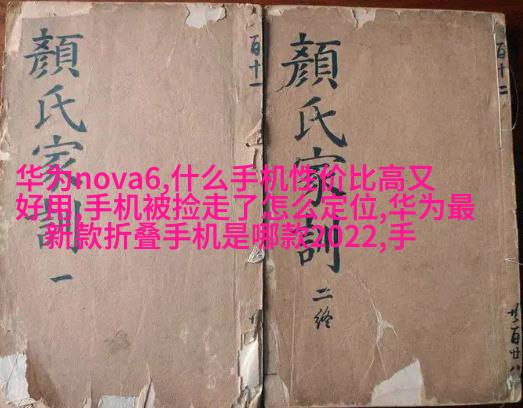 顏氏家訓 一
百十一
顏氏家訓 二終
百十二
华为nova6,什么手机性价比高又
好用,手机被捡走了怎么定位,华为最
新款折叠手机是哪款2022,手